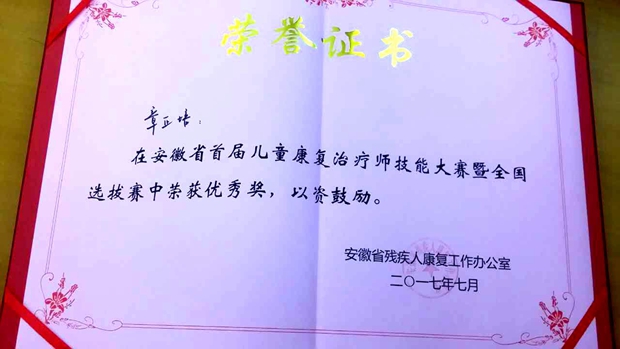 荣誉证书
章正培：
在安徽省首届儿童康复治疗师技能大赛暨全国
选拔赛中荣获优秀奖，以资鼓励。
安徽省残疾人康复工作办公室
二〇一七年七月